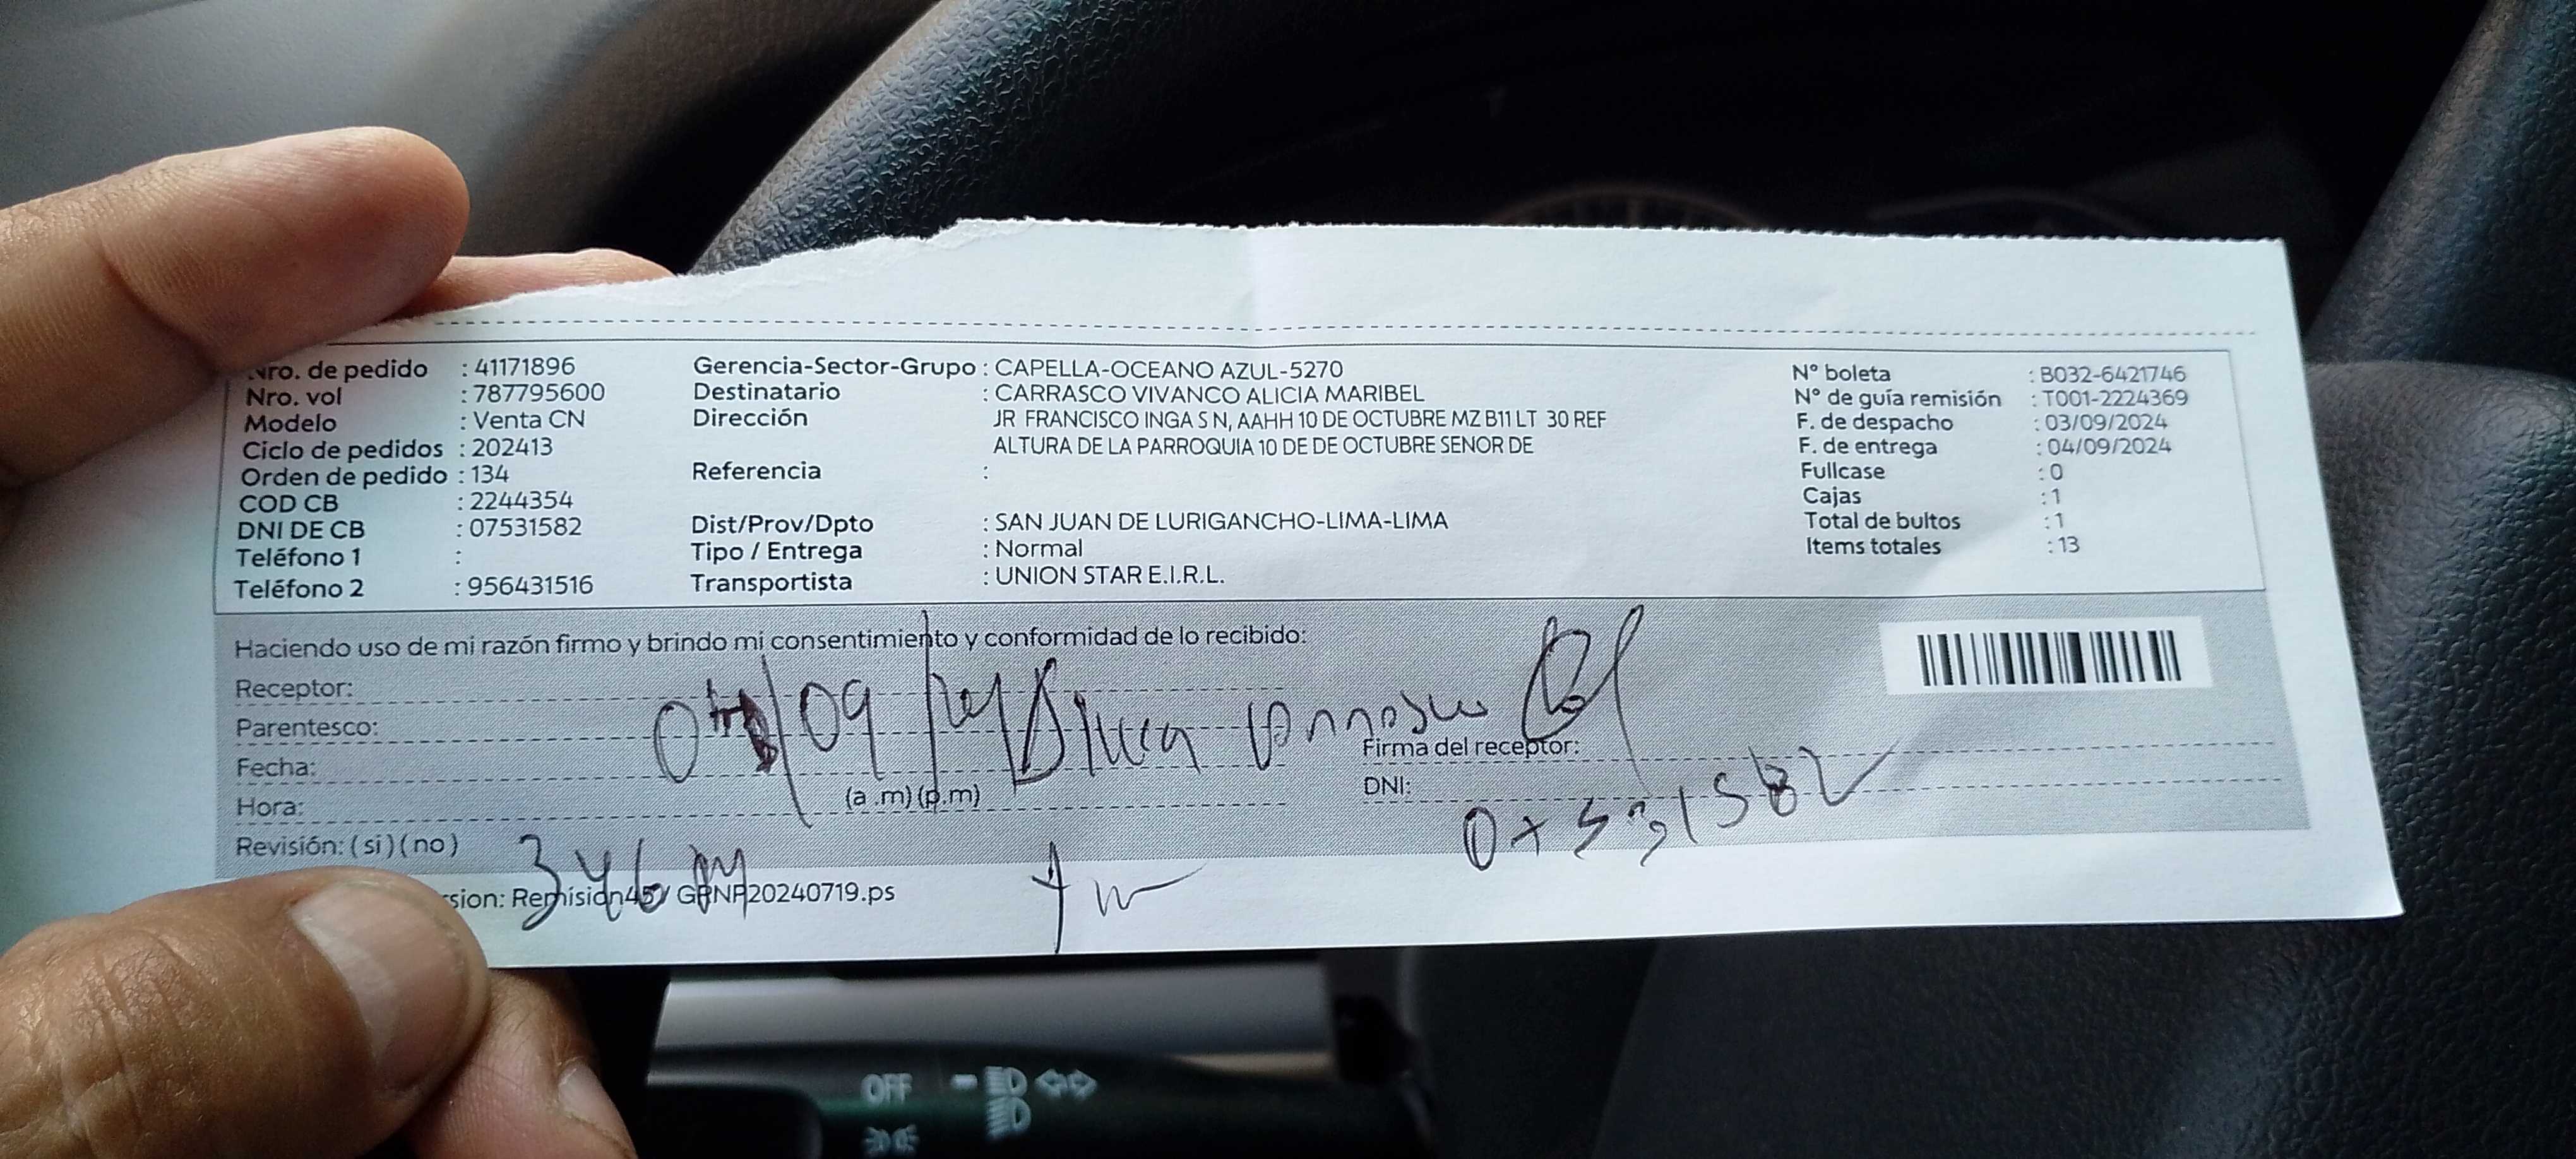 Nro. de pedido : 41171896
Nro. vol : 787795600
Modelo : Venta CN
Ciclo de pedidos : 202413
Orden de pedido : 134
COD CB : 2244354
DNI DE CB : 07531582
Teléfono 1 :
Teléfono 2 : 956431516
Gerencia-Sector-Grupo : CAPELLA-OCEANO AZUL-5270
Destinatario : CARRASCO VIVANCO ALICIA MARIBEL
Dirección JR FRANCISCO INGA S N, AAHH 10 DE OCTUBRE MZ B11 LT 30 REF
ALTURA DE LA PARROQUIA 10 DE DE OCTUBRE SENOR DE
Referencia :
Dist/Prov/Dpto : SAN JUAN DE LURIGANCHO-LIMA-LIMA
Tipo / Entrega : Normal
Transportista : UNION STAR E.I.R.L.
N° boleta : B032-6421746
N° de guía remisión : T001-2224369
F. de despacho : 03/09/2024
F. de entrega : 04/09/2024
Fullcase : 0
Cajas : 1
Total de bultos : 1
Items totales : 13
Haciendo uso de mi razón firmo y brindo mi consentimiento y conformidad de lo recibido:
Receptor:
Parentesco:
Fecha:
Hora: (a .m) (p.m)
Revisión: ( si ) ( no )
Firma del receptor:
DNI: 07531582
sion: Remision45/ GRNP20240719.ps
OFF